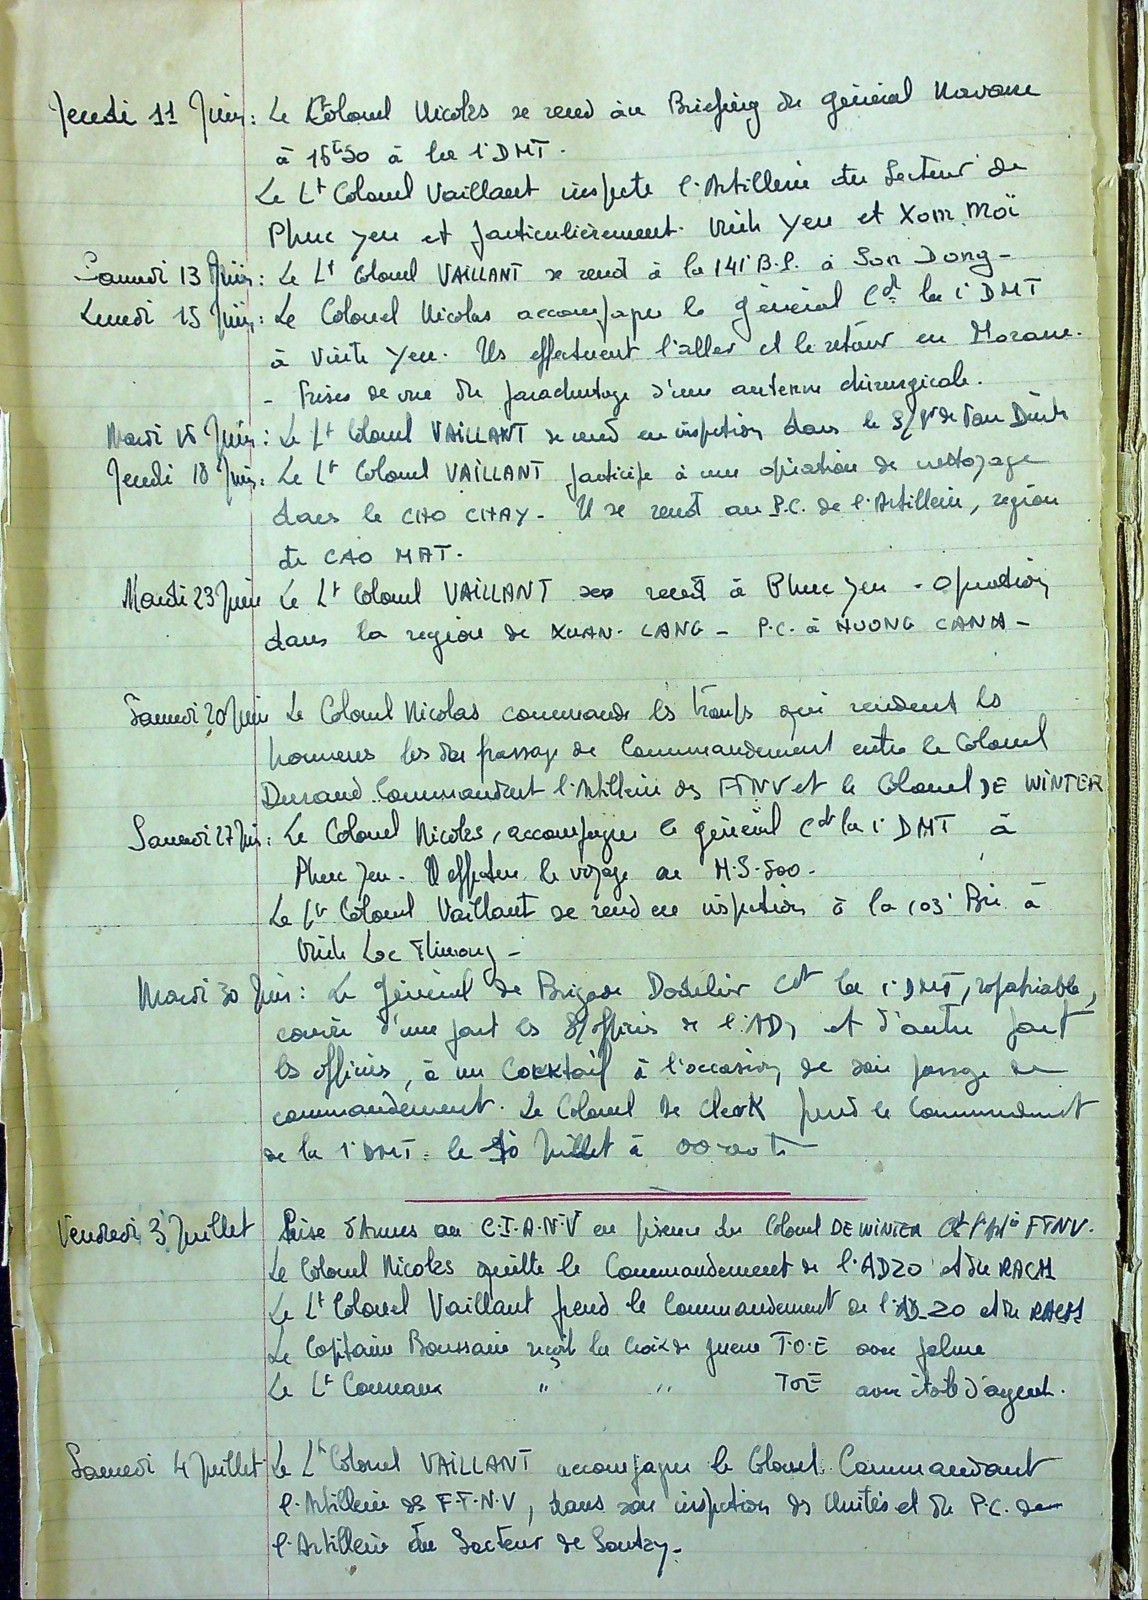 Jeudi 11 Juin : Le Colonel Nicolas se rend au Briefing du général Navarre
à 16h30 à la 1° DMT.
Le Lt Colonel Vaillant inspecte l'Artillerie du Secteur de
Phuc Yen et particulièrement. Vinh Yen et Xom Moï
Samedi 13 Juin : Le Lt Colonel VAILLANT se rend à la 141° B.P. à Son Dong -
Lundi 15 Juin : Le Colonel Nicolas accompagne le général Cdt la 1° DMT
à Vinh Yen. Ils effectuent l'aller et le retour en Morane.
- Prises de vue du parachutage d'une antenne chirurgicale.
Mardi 16 Juin : Le Lt Colonel VAILLANT se rend en inspection dans le S/ de Dinh
Jeudi 18 Juin : Le Lt Colonel VAILLANT participe à une opération de nettoyage
dans le CHO CHAY - Il se rend au P.C. de l'Artillerie, région
de CAO MAT.
Mardi 23 Juin Le Lt Colonel VAILLANT se rend à Phuc Yen - Opération
dans la région de XUAN - LANG - P.C. à HUONG CANH -
Samedi 20 Juin Le Colonel Nicolas commande les troupes qui rendent les
honneurs lors du passage de Commandement entre le Colonel
Durand Commandant l'Artillerie des FTNV et le Colonel DE WINTER
Samedi 27 Juin : Le Colonel Nicolas, accompagne le général Cdt la 1° DMT à
Phuc Yen. Il effectue le voyage en M.S. 500.
Le Lt Colonel Vaillant se rend en inspection à la 103° Bie à
Vinh Loc
Mardi 30 Juin : Le Général de Brigade Cdt la 1° DMT, rapatriable,
convie d'une part les S/officiers de l'AD, et d'autre part
les officiers, à un Cocktail à l'occasion de son passage de
commandement. Le Colonel De Clerk prend le Commandement
de la 1° DMT : le Juillet à
Vendredi 3 Juillet Prise d'Armes au C.I.A.N.V en présence du Colonel DE WINTER Cdt l'Art FTNV.
Le Colonel Nicolas quitte le Commandement de l'AD20 et du RACM
Le Lt Colonel Vaillant prend le Commandement de l'AD_20 et du RACM
Le Capitaine Boussarie reçoit la Croix de guerre T.O.E avec palme
Le Lt " " TOE avec étoile d'argent.
Samedi 4 Juillet Le Lt Colonel VAILLANT accompagne le Colonel Commandant
l'Artillerie des F.T.N.V, dans son inspection des Unités et du P.C. de
l'Artillerie du Secteur de Sontay -